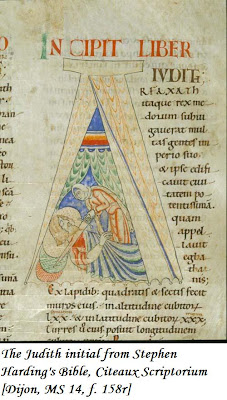 O INCIPIT LIBER
IUDIT
A RFAXATH
itaque rex me
dorum subiu
gauerat mul
tas gentes im
perio suo
& ipse edifi
cauit ciui
tatem po
tentissima
quam
appel
lauit
egba
Ex lapidib; quadratis & sectis fecit
muros eius. in altitudine cubitor
& in latitudine cubitor xxx.
eius posuit longitudinem
The Judith initial from Stephen
Harding's Bible, Citeaux Scriptorium
[Dijon, MS 14, f. 158r]